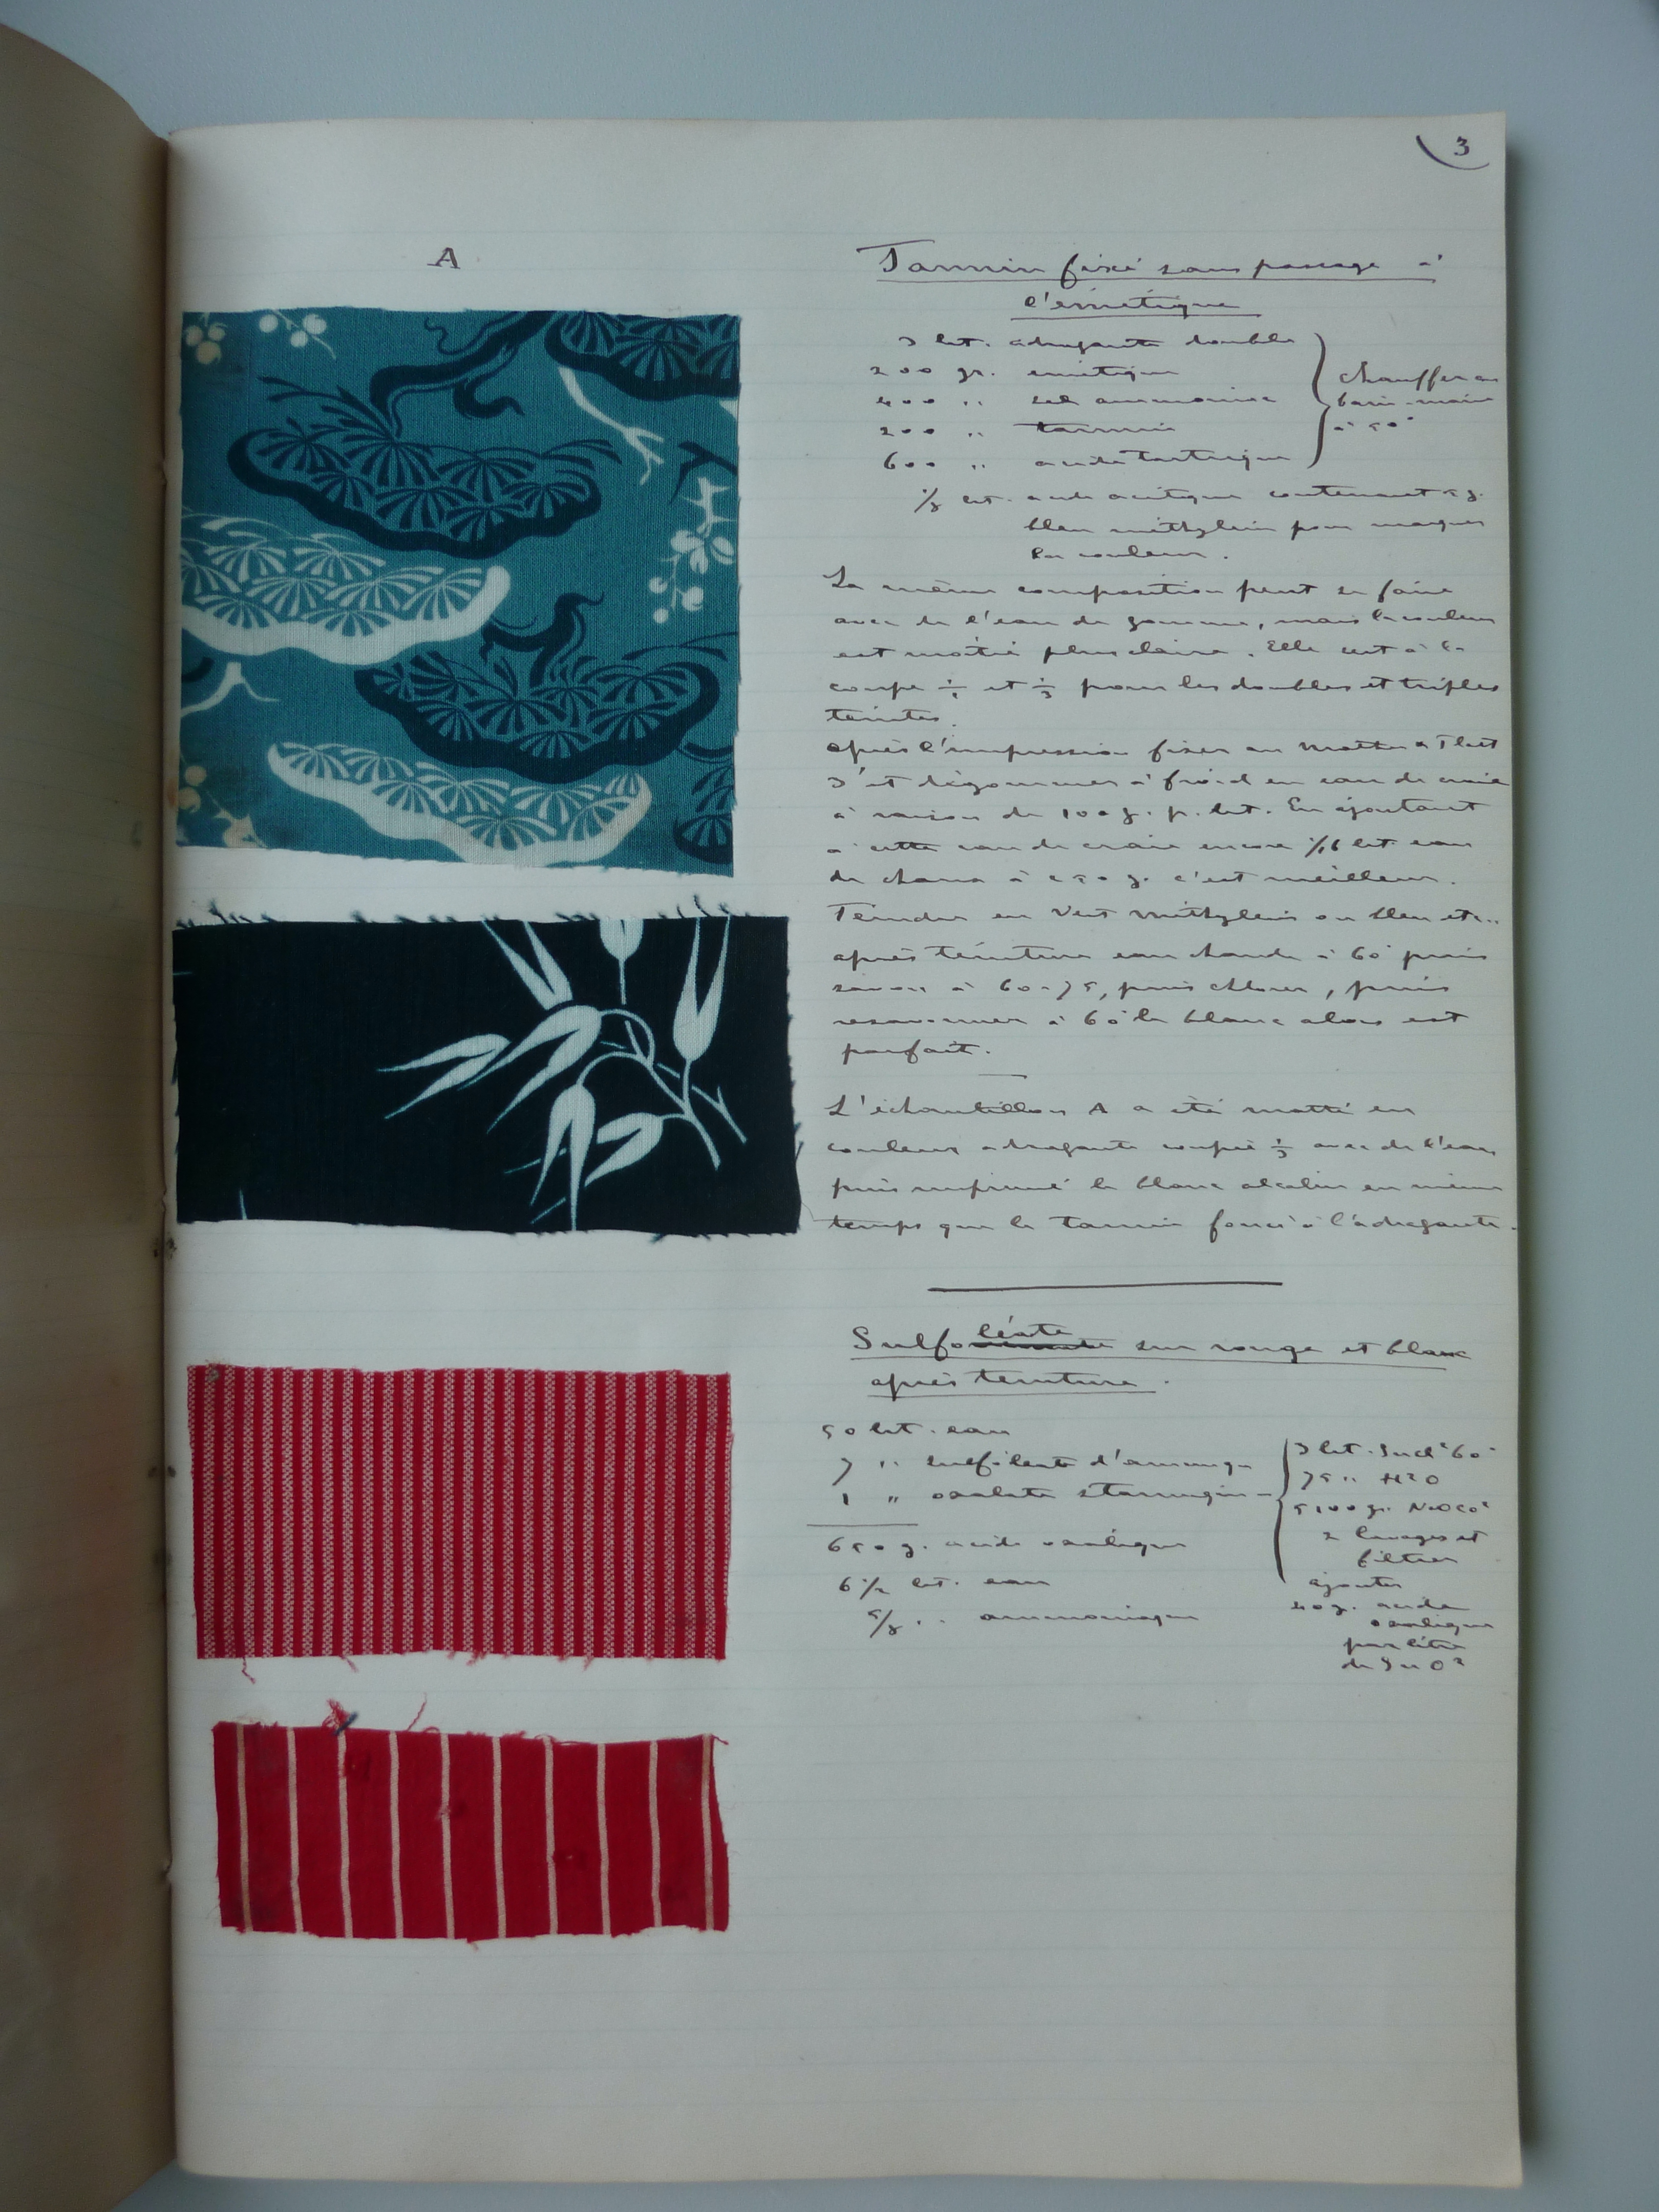 3
A
Tannin fixé sans passage à
l'émétique
3 lit. adragante double
200 gr. émétique
400 " sel ammoniac
200 " tannin
600 " acide tartrique
chauffer au
bain-marie
à 50°
lit. acide acétique contenant 5 g.
bleu méthylène pour marquer
la couleur.
La même composition peut se faire
avec de l'eau de gomme, mais la couleur
est moitié plus claire. Elle est à la
coupe et pour les doubles et triples
teintes.
après l'impression fixer au Mather & Platt
3' et dégommer à froid en eau de craie
à raison de 100 g. p. lit. En ajoutant
à cette eau de craie encore lit eau
de chaux à 250 g. c'est meilleur.
Teindre en Vert méthylène ou bleu etc..
après teinture eau chaude à 60° puis
savon à 60-75, puis chlorer, puis
resavonner à 60° le blanc alors est
parfait.
L'échantillon A a été matté en
couleur adragante coupée 1/3 avec de l'eau
puis imprimé le blanc alcalin en même
temps que le tannin foncé à l'adragante.
Sulfoléate sur rouge et blanc
après teinture.
50 lit. eau
7 " sulfoléate d'ammonique
1 " oxalate stannique
3 lit. SnCl⁴ 60°
75 " H²O
5100 gr. NaOCO²
2 lavages et
filtrer
ajouter
40 g. acide
oxalique
par litre
de SnO²
650 g. acide oxalique
6 1/2 lit. eau
" ammoniaque